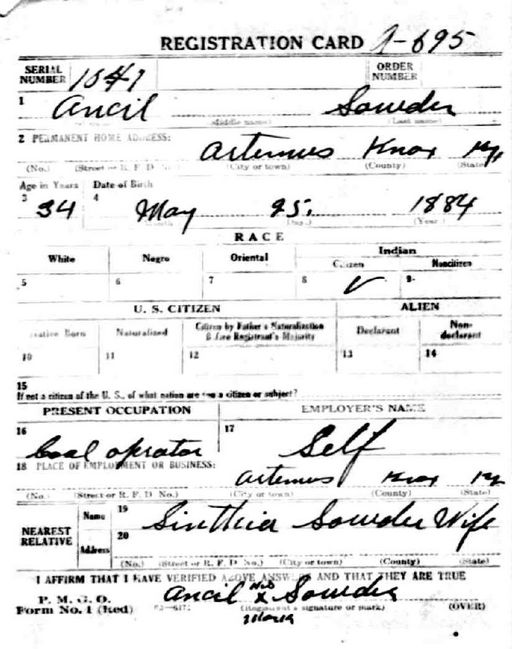 REGISTRATION CARD
SERIAL NUMBER 1541 ORDER NUMBER
1 Ancil Sowder
(Middle name) (Last name)
2 PERMANENT HOME ADDRESS:
Artemus Knox Ky
(No.) (Street or R. F. D. No.) (City or town) (County) (State)
Age in Years Date of Birth
3 34 4 May 25. 1884
(Year.)
RACE
White Negro Oriental Indian
Citizen Noncitizen
5 6 7 8 ✓ 9
U. S. CITIZEN ALIEN
Native Born Naturalized Citizen by Father's Naturalization Before Registrant's Majority Declarant Non-declarant
10 11 12 13 14
15
If not a citizen of the U. S., of what nation are you a citizen or subject?
PRESENT OCCUPATION EMPLOYER'S NAME
16 Coal oprator 17 Self
18 PLACE OF EMPLOYMENT OR BUSINESS:
Artemus Knox Ky
(No.) (Street or R. F. D. No.) (City or town) (County) (State)
NEAREST RELATIVE
Name 19 Sinthia Sowder Wife
Address 20
(No.) (Street or R. F. D. No.) (City or town) (County) (State)
I AFFIRM THAT I HAVE VERIFIED ABOVE ANSWERS AND THAT THEY ARE TRUE
P. M. G. O.
Form No. 1 (Red) Ancil his x Sowder
(Registrant's signature or mark) (OVER)
mark